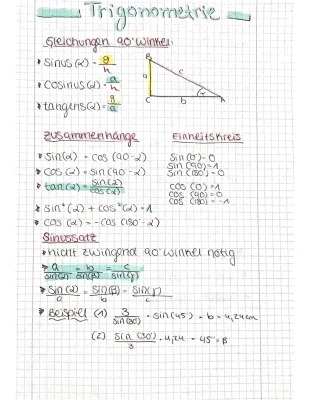 Trigonometrie
Gleichungen 90° Winkel:
• sinus(α) = g/h
• cosinus(α) = a/h
• tangens(α) = g/a
B
a
c
C
b
α
A
Zusammenhänge
Einheitskreis
• sin(α) = cos(90-α)
• cos(α) = sin(90-α)
• tan(α) = sin(α)/cos(α)
• sin²(α) + cos²(α) = 1
• cos(α) = -cos(180°-α)
sin(0°) = 0
sin(90) = 1
sin(180) = 0
cos(0) = 1
cos(90) = 0
cos(180) = -1
Sinussatz
• nicht zwingend 90° Winkel nötig
• a/sin(α) = b/sin(β) = c/sin(γ)
• sin(α)/a = sin(β)/b = sin(γ)/c
• Beispiel (1) 3/sin(30) · sin(45) = b = 4,24cm
(2) sin(30)/3 · 4,24 = 45° = β